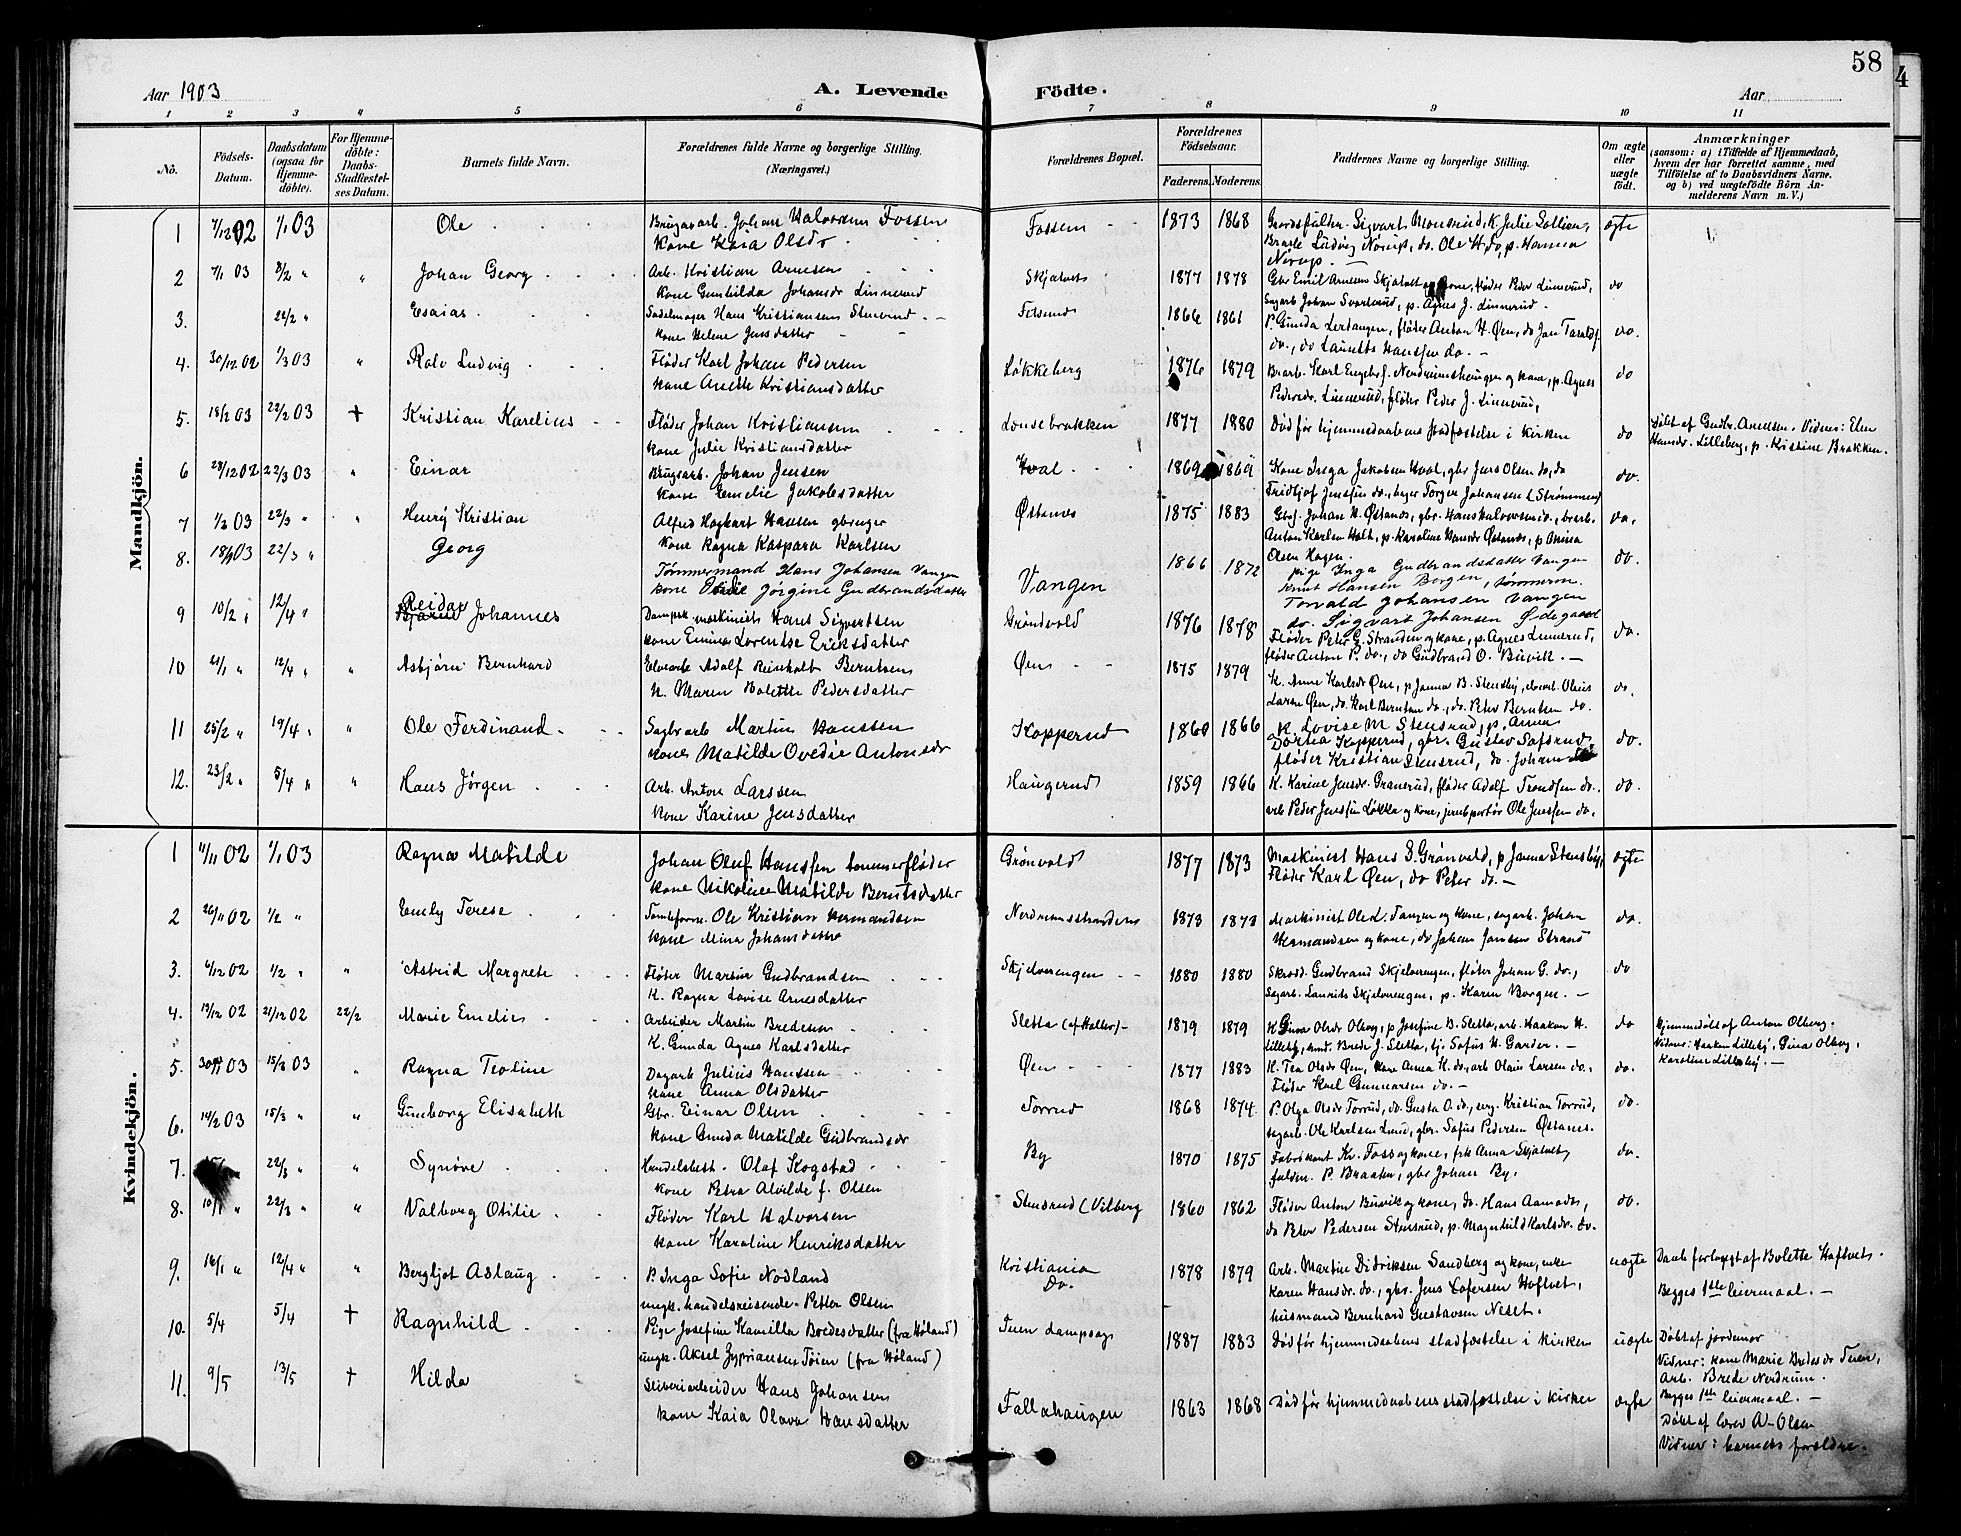 58
4
Aar 1903
A. Levende
Födte.
Aar
1 2 3 4 5 6 7 8 9 10 11
No.
Födsels-Datum.
Daabsdatum (ogsaa for Hjemme-döbte).
For Hjemme-döbte: Daabs-Stadfæstel-ses Datum.
Barnets fulde Navn.
Forældrenes fulde Navne og borgerlige Stilling.
(Næringsvei.)
Forældrenes Bopæl.
Forældrenes Födselsaar.
Faderens. Moderens.
Faddernes Navne og borgerlige Stilling.
Om ægte eller uægte födt.
Anmærkninger
(saasom: a) i Tilfælde af Hjemmedaab, hvem der har forrettet samme, med Tilföielse af to Daabsvidners Navne. og b) ved uægtefödte Börn An-melderens Navn m. V.)
Mandkjön.
1 7/12 02 1/1 03 Ole Brugsarb. Johan Halvorsen Fossen
Kone Kaia Olsdr. Fossum 1873 1868 ægte
2 7/1 03 8/2 " " Johan Georg Arb. Kristian Arnesen
Kone Gunhilda Johansdr Linnerud Skjatvet 1877 1878 do
3. 22/2 " Esaias Sadelmager Hans Kristiansen
Kone Helene Jensdatter Fetsund 1866 1861 do.
4. 30/12 02 1/3 03 " Rolv Ludvig Fløder Karl Johan Pedersen
Kone Anette Kristiansdatter Løkkeberg 1876 1879 Pedersdr. Linnerud, fløter Peder J. Linnerud, do
5. 18/2 03 22/2 03 + Kristian Karelius Fløder Johan Kristiansen
Kone Julie Kristiansdatter 1877 1880 Død før hjemmedaabens stadfæstelse i kirken do
Hansdr. Lilleberg, p. Kristine Brakken.
6 28/12 02 22/3 03 " Einar Brugsarb. Johan Jensen
Kone Emelie Jakobsdatter Hval 1869 1869 Kone Inga Jakobsen Hval, gbr Jens Olsen do, do do.
7 1/2 03 22/3 " " Henry Kristian Alfred Hagbart Hansen gbruger
Kone Ragna Kaspara Karlsen Østanes 1875 1883 do.
8. 22/3 " Georg Tømmermand Hans Johansen Vangen
Kone Jørgine Gudbrandsdatter Vangen 1866 1872 pige Inga Gudbrandsdatter Vangen
Knut Hansen Borgen, tømmerm.
Torvald Johansen Vangen
do. Sigvart Johansen Ødegaard do.
9 10/2 " 12/4 " Reidar Johannes maskinist Hans Sigvertsen
Kone Emma Lorentse Eriksdatter Grøndvold 1876 1878 Fløder Peter G. Stranden og kone, p. Agnes Linnerud,
fløder Anton P. do., do Gudbrand O. Buvik. — do.
10 12/4 " " Asbjørn Bernhard Adolf Reinholt Berntsen
K. Maren Bolette Pedersdatter Øen 1875 1879 Larsen Øen, do. Karl Berntsen do., do. Peter Berntsen do. do.
11 25/2 " 19/4 " " Ole Ferdinand Sagbrarb Martin Hanssen
Kone Matilde Ovedie Antonsdr Kopperud 1860 1866 K. Lovise M Stensrud, p. Anna
Dortea Kopperud, gbr. Gustav Safsrud,
fløder Kristian Stensrud, do. Johan do. do.
12. 23/2 " 5/4 " " Hans Jørgen Arb. Anton Larssen
Kone Karine Jensdatter Haugerud 1859 1866 K. Karine Jensdr. Granerud, fløder Adolf Trondsen do.,
arb Peder Jenssen Løkka og kone, jernbportør Ole Jenssen do, do.
Kvindekjön.
1 11/11 02 1/1 03 Ragna Matilde Johan Oluf Hanssen tømmerfløder
Kone Nikoline Matilde Berntsdatter Grønvold 1877 1873 Maskinist Hans S. Grønvold, p Janna Stensby,
Fløder Karl Øen, do Peter do. — ægte
2 26/11 02 1/2 " Emly Terese Tomteform. Ole Kristian Hermandsen
Kone Mina Johansdatter Nordrumsstranden 1873 1873 Maskinist Ole L. Tangen og kone, sagarb. Johan
Hermandsen og kone, do Johan Jansen Strand do.
3. 6/12 02 1/2 " " Astrid Margrete Fløter Martin Gudbrandsen
K. Ragna Lovise Arnesdatter Skjelvorengen 1880 1880 Gudbrand Skjelvorengen, fløter Johan G. do.,
Sagarb. Laurits Skjelvorengen, p. Karen Borgen. — do
4. 19/12 02 21/12 02 22/2 Marie Emelie Arbeider Martin Bredesen
K. Gunda Agnes Karlsdatter Sletta (af Halter) — 1879 1879 K Gina Olsdr Olberg, p Josefine B. Sletta, arb. Haakon H.
Lilleby, Brede J. Sletta, tj. Sofus H. Garder. — do
Hjemmedøbt af Anton Olberg.
Vidner: Haakon Lilleby, Gina Olberg,
Karoline Lilleby. —
5. 15/3 03 " Ragna Teoline Dagarb Julius Hanssen
Kone Anna Olsdatter Øen 1877 1883 K. Tea Olsdr Øen, Kone Anna H. do., arb Olaus Larsen do.,
Fløder Karl Gunnarsen do. — do.
6. 14/2 03 15/3 " " Gunborg Elisabeth Gbr. Einar Olsen
Kone Gunda Matilde Gudbrandsdr Torrud 1868 1874. P. Olga Olsdr Torrud, do. Gusta O. do., ung. Kristian Torrud,
sagarb. Ole Karlsen Lund, gbr. Sofus Pedersen Østanes. do.
7. 22/3 " " Synøve Handelsbest. Olaf Kogstad
Kone Petra Alvilde f. Olsen By 1870 1875 Fabrikant Kr. Foss og kone, frk Anna Skjatvet,
P. Braaten, gbr Johan By. do.
8. 10/1 " 22/3 " " Valborg Otilie Fløder Karl Halvorsen
Kone Karoline Henriksdatter Stensrud (Vilberg 1860 1862 Fløder Anton Buvik og kone, do. Hans Aamodt,
do Peter Pedersen Stensrud, p. Magnhild Karlsdr. do. do.
9. 16/1 " 12/4 " " Bergljot Aslaug P. Inga Sofie Nodland
ungk. handelsreisende Petter Olsen Kristiania
Do. 1878 1879 Arb. Martin Didriksen Sandberg og kone, enke
Karen Hansdr. do, gbr. Jens Hoftvet,
husmand Bernhard Gustavsen Neset. uægte
Daab forlangt af Bolette Hoftvet.
Begges 1ste leiermaal. —
10. 5/4 5/4 + Ragnhild Pige Josefine Kamilla Bredesdatter (fra Høland)
ungk. Aksel Zyprianssen Tøien (fra Høland) Teien dampsag 1887 1883 Død før hjemmedaabens stadfæstelse i kirken uægte
Døbt af jordemor
Vidner: Kone Marie Bredesdr Teien,
Arb. Brede Nordrum.
Begges 1ste leiermaal. —
11. 9/5 13/5 + Hilda Sliberiarbeider Hans Johansen
Kone Kaia Olava Hansdatter Fallahaugen 1863 1868 Død før hjemmedaabens stadfæstelse i kirken ægte
Døbt af lærer A. Olsen
Vidner: barnets forældre.